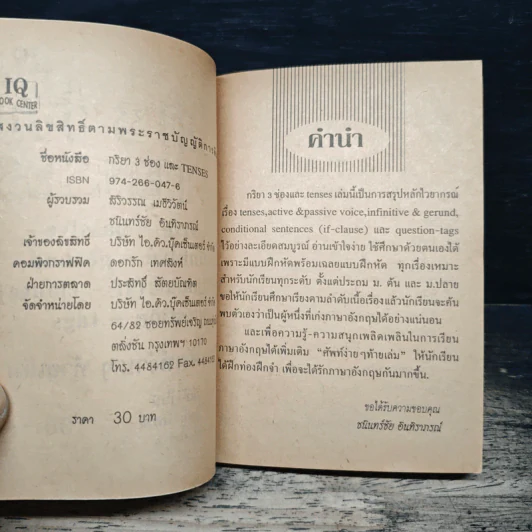 IQ
BOOK CENTER
สงวนลิขสิทธิ์ตามพระราชบัญญัติการ
ชื่อหนังสือ กริยา 3 ช่อง และ TENSES
ISBN 974-266-047-6
ผู้รวบรวม สิริวรรณ เมธีวิวัฒน์
ชนินทร์ชัย อินทิราภรณ์
เจ้าของลิขสิทธิ์ บริษัท ไอ.คิว.บุ๊คเซ็นเตอร์ จำกัด
คอมพิวกราฟฟิค ดอกรัก เทศสิงห์
ฝ่ายการตลาด ประสิทธิ์ สัตยบัณฑิต
จัดจำหน่ายโดย บริษัท ไอ.คิว.บุ๊คเซ็นเตอร์ จำกัด
64/82 ซอยทรัพย์เจริญ
ตลิ่งชัน กรุงเทพฯ 10170
โทร. 4484162 Fax. 4484162
ราคา 30 บาท
คำนำ
กริยา 3 ช่องและ tenses เล่มนี้เป็นการสรุปหลักไวยากรณ์
เรื่อง tenses,active &passive voice,infinitive & gerund,
conditional sentences (if-clause) และ question-tags
ไว้อย่างละเอียดสมบูรณ์ อ่านเข้าใจง่าย ใช้ศึกษาด้วยตนเองได้
เพราะมีแบบฝึกหัดพร้อมเฉลยแบบฝึกหัด ทุกเรื่องเหมาะ
สำหรับนักเรียนทุกระดับ ตั้งแต่ประถม ม. ต้น และ ม.ปลาย
ขอให้นักเรียนศึกษาเรียงตามลำดับเนื้อเรื่องแล้วนักเรียนจะค้น
พบตัวเองว่าเป็นผู้หนึ่งที่เก่งภาษาอังกฤษได้อย่างแน่นอน
และเพื่อความรู้-ความสนุกเพลิดเพลินในการเรียน
ภาษาอังกฤษได้เพิ่มเติม "ศัพท์ง่ายๆท้ายเล่ม" ให้นักเรียน
ได้ฝึกท่องฝึกจำ เพื่อจะได้รักภาษาอังกฤษกันมากขึ้น.
ขอได้รับความขอบคุณ
ชนินทร์ชัย อินทิราภรณ์